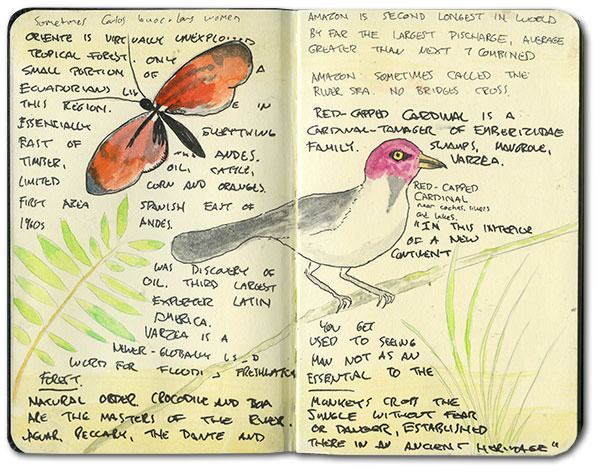 Sometimes Carlos binoculars women
ORIENTE IS VIRTUALLY UNEXPLORED
TROPICAL FOREST. ONLY
SMALL PORTION OF A
ECUADORIANS LIVE
THIS REGION. E IN
ESSENCIALLY EVERYTHING
EAST OF THE ANDES.
TIMBER, OIL, CATTLE,
LIMITED CORN AND ORANGES.
FIRST AREA SPANISH EAST OF
1960s ANDES.
WAS DISCOVERY OF
OIL. THIRD LARGEST
EXPORTER LATIN
AMERICA.
VARZEA IS A
NEVER-GLOBALLY USED
WORD FOR FLOODS FRESHWATER
FOREST.
NATURAL ORDER CROCODILE AND BOA
ARE THE MASTERS OF THE RIVER.
JAGUAR, PECCARY, THE DANTE AND
AMAZON IS SECOND LONGEST IN WORLD
BY FAR THE LARGEST DISCHARGE, AVERAGE
GREATER THAN NEXT 7 COMBINED
AMAZON SOMETIMES CALLED THE
RIVER SEA. NO BRIDGES CROSS.
RED-CAPPED CARDINAL IS A
CARDINAL-TANAGER OF EMBERIZIDAE
FAMILY. SWAMPS, MANGROVE,
VARZEA.
RED-CAPPED
CARDINAL
near cochas, rivers
and lakes.
"IN THIS INTERIOR
OF A NEW
CONTINENT
YOU GET
USED TO SEEING
MAN NOT AS AN
ESSENTIAL TO THE
MONKEYS CROSS THE
JUNGLE WITHOUT FEAR
OR DANGER, ESTABLISHED
THERE IN AN ANCIENT HERITAGE"